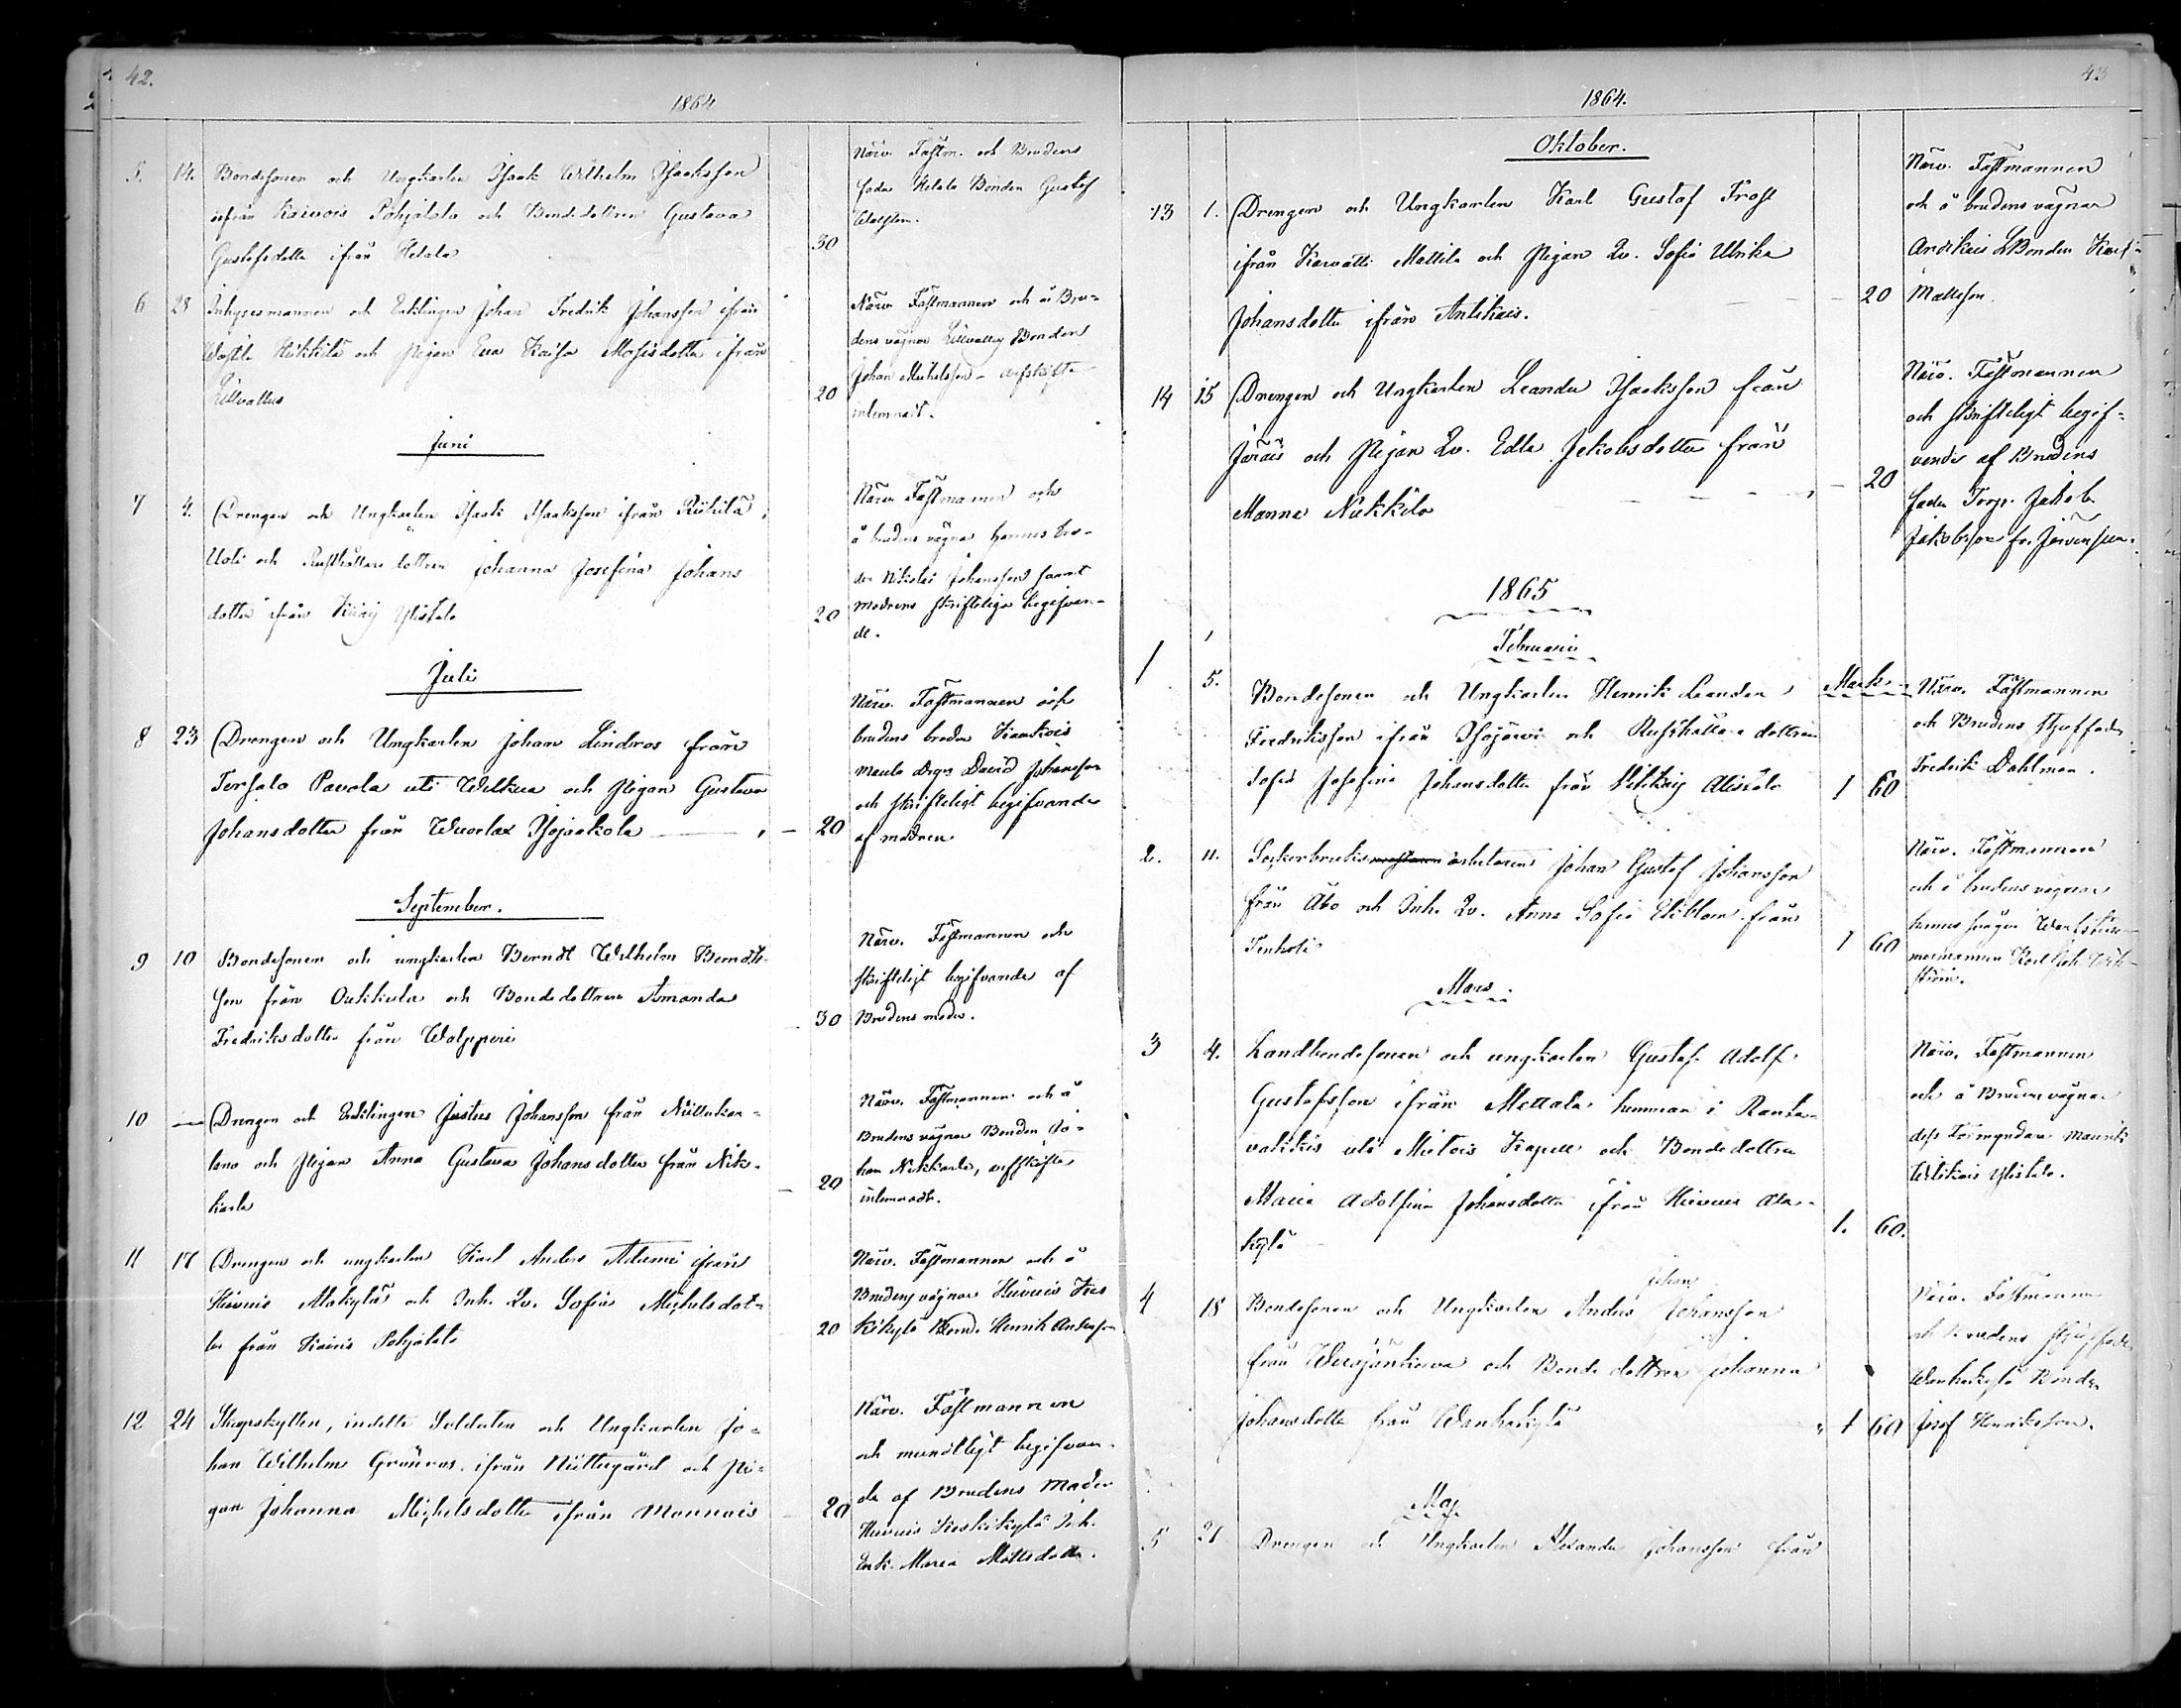 42.
1864
5. 14. Bondesonen och Ungkarlen Isaak Wilhelm Isaksson
ifrån Kaivois Pohjatalo och Bondedottren Gustava
Gustafsdotter ifrån Hetala
30
Närv. Fästm. och Brudens
fader Hetala Bonden Gustaf
6 28 Inhysesmannen och Enklingen Johan Fredrik Johansson ifrån
Heikkilä och Pigan Eva Kaisa Mosisdotter ifrån
Lillvallus
20
Närv. Fästmannen och å Bru-
dens vägnar Lillvallus Bonden
Johan Michelsson - arfskifte
inlemnadt.
Juni
7 4. Drengen och Ungkarlen Isaak Isaksson ifrån Riihilä
Uoti och Rusthållaredottren Johanna Josefina Johans
dotter ifrån Ylistalo
20
Närv. Fästmannen och
å brudens vägnar hennes bro-
der Nikolai Johansson samt
modrens skriftliga begifvan-
de.
Juli
8 23 Drengen och Ungkarlen Johan Lindros från
Tersalo Pavola uti Welkua och Pigan Gustava
Johansdotter från Wuorlax Isojaakola
20
Närv. Fästmannen och
brudens broder
Drgn David Johansson
och skriftligt begifvande
af modren.
September.
9 10 Bondesonen och ungkarlen Berndt Wilhelm Berndts-
son från Oukkula och Bondedottren Amanda
Fredriksdotter från Walpperi
30
Närv. Fästmannen och
skriftligt begifvande af
Brudens moder.
10 — Drengen och Enklingen Justus Johansson från
och Pigan Anna Gustava Johansdotter från Nik-
karla
20
Närv. Fästmannen och å
Brudens vägnar Bonden Jo-
han Nikkarla, arfskifte
inlemnadt.
11 17 Drengen och ungkarlen Karl Anders Adami ifrån
Hirvois Alakylä och Inh. Qv. Sofia Michelsdot-
ter från Kaivois Pohjatalo
20
Närv. Fästmannen och å
Brudens vägnar Hirvois Kes
kikylä Bond. Henrik Andersson
12 24 Skarpskytten, indelte Soldaten och Ungkarlen Jo-
han Wilhelm Grönroos ifrån Niittugård och Pi-
gan Johanna Michelsdotter ifrån Monnois
20
Närv. Fästmannen
och mundtligt begifvan-
de af Brudens Moder
Hirvois Keskikylä Inh.
Enk. Maria Mattsdotter.
43
1864.
Oktober.
13 1. Drengen och Ungkarlen Karl Gustaf Frost
ifrån Karvatti Mattila och Pigan Qv. Sofia Ulrika
Johansdotter ifrån Antikais.
20
Närv. Fästmannen
och å brudens vägnar
LBonden Karl
Mattsson.
14 15 Drengen och Ungkarlen Leander Isaksson från
Järäis och Pigan Qv. Edla Jakobsdotter från
Manna Nikkilä
20
Närv. Fästmannen
och skriftligt begif-
vande af Brudens
fader Torp. Jakob
Jakobsson fr.
1865
Februari
1 5. Bondesonen och Ungkarlen Henrik Leander
Fredriksson ifrån Isojärvi och Rusthållaredottren
Sofia Josefina Johansdotter från Alistalo
Mark
1 60
Närv. Fästmannen
och Brudens styffader
Fredrik Dahlman.
2. 11. Sockerbruks arbetaren Johan Gustaf Johansson
från Åbo och Inh. Qv. Anna Sofia Ekblom från
Tenholi
1 60
Närv. Fästmannen
och å brudens vägnar
hennes svåger
Mars
3 4. Landbondesonen och ungkarlen Gustaf Adolf
Gustafsson ifrån Mettala hemman i Ranta-
vakkis uti Mietois Kapell och Bondedottren
Maria Adolfina Johansdotter ifrån Hirvois Ala-
kylä
1. 60.
Närv. Fästmannen
och å Brudens vägnar
dess Förmyndare Maurits
Ylistalo.
4 18 Bondesonen och Ungkarlen Anders Johan Johansson
från och Bondedottren Johanna
Johansdotter från Wanhakylä
1 60
Närv. Fästmannen
och Brudens styffader
Wanhakylä Bonden
Josef Henriksson.
Maj.
5 21 Drengen och Ungkarlen Alexander Johansson från